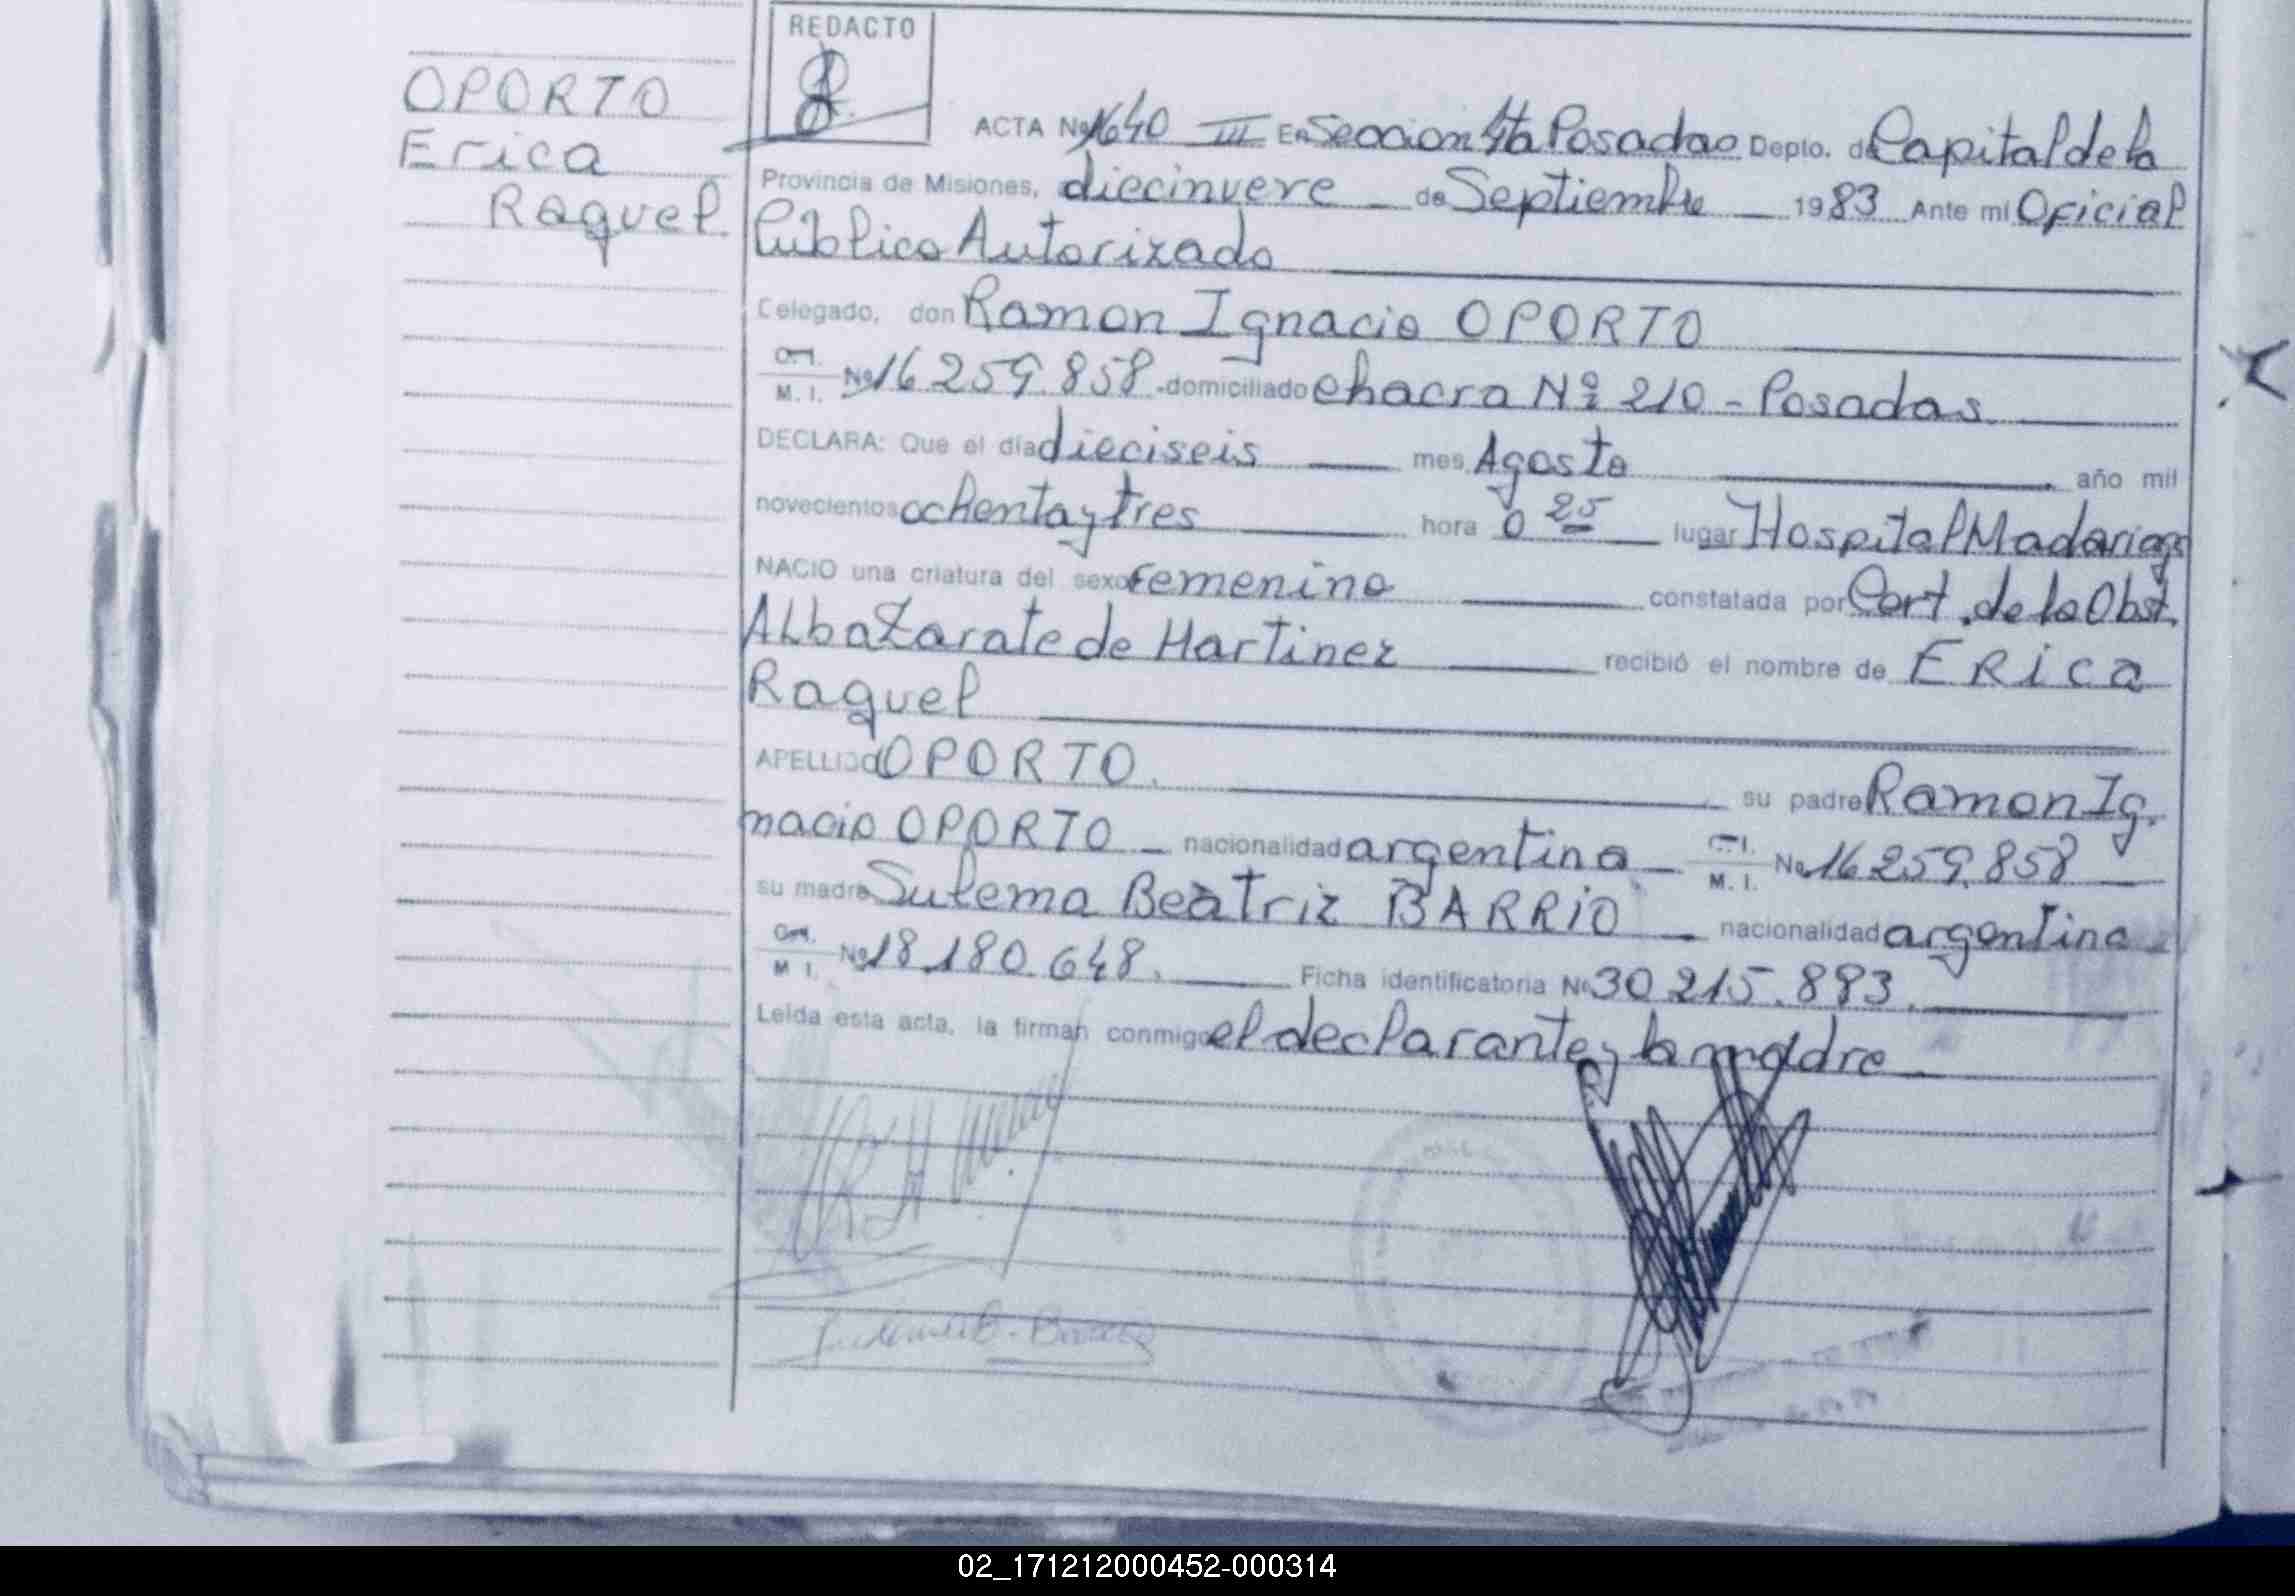 OPORTO
Erica
Raquel
REDACTO
ACTA Nº 1640 III En Seccion 4ta Posadas Depto. de Capital de la
Provincia de Misiones, diecinueve de Septiembre 1983 Ante mi Oficial
Público Autorizado
Delegado, don Ramon Ignacio OPORTO
C.I.
M. I. Nº 16.259.858. domiciliado chacra Nº 210 - Posadas
DECLARA: Que el día dieciseis mes Agosto año mil
novecientos ochenta y tres hora 0 25 lugar Hospital Madariaga
NACIO una criatura del sexo femenino constatada por Cert. de la Obst.
Alba Zarate de Martinez recibió el nombre de ERica
Raquel
APELLIDO OPORTO. su padre Ramon Ig.
nacio OPORTO nacionalidad argentina C.I.
M. I. Nº 16.259.858
su madre Sulema Beatriz BARRIO nacionalidad argentina
C.I.
M I. Nº 18.180.648. Ficha identificatoria Nº 30.215.883.
Leída esta acta, la firman conmigo el declarante y la madre
02_171212000452-000314